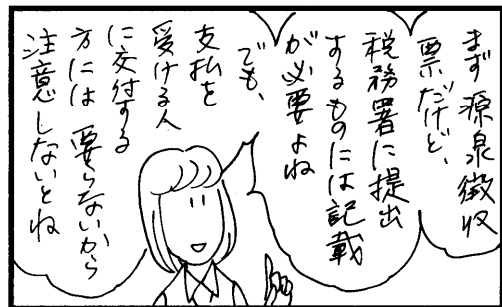 まず源泉徴収
票だけど、
税務署に提出
するものには記載
が必要よね
でも、
支払を
受ける人
に交付する
方には要らないから
注意しないとね